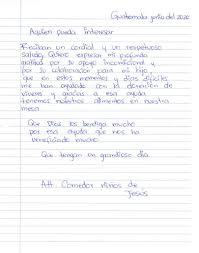 Guatemala junio del 2020
Aquien pueda interesar
Reciban un cordial y un respetuoso
saludo, Quiero expresar mi profunda
gratitud por su apoyo incondicional y
por su colaboración para mi hijo,
que en estos momentos y días difíciles
me han ayudado con la donación de
víveres y gracias a esa ayuda
tenemos nuestros alimentos en nuestra
mesa
Que Dios les bendiga mucho
por esa ayuda que nos ha
beneficiado mucho
Que tengan un grandioso día
Att Comedor niños de
Jesús